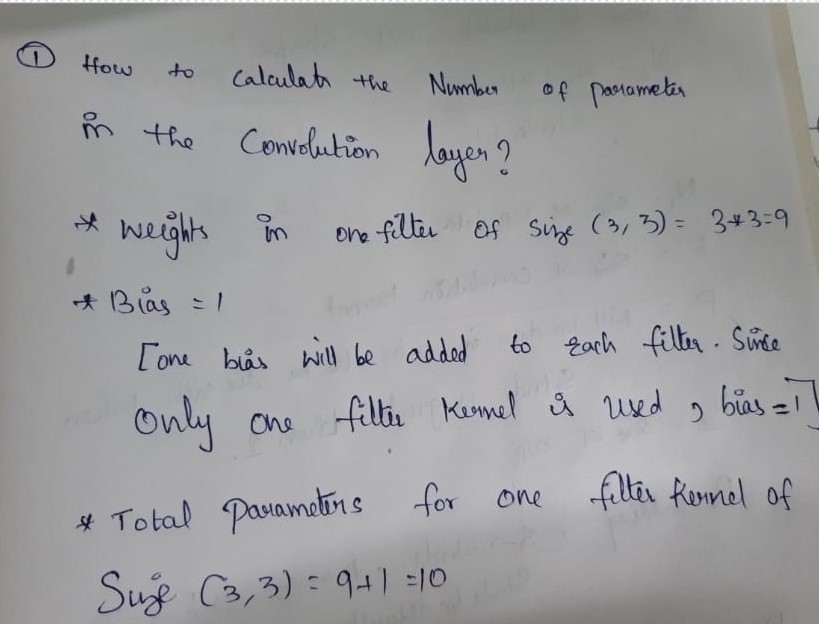 ① How to Calculate the Number of parameter
in the Convolution layer?
* Weights in one filter of size (3, 3) = 3*3=9
* Bias = 1
[one bias will be added to each filter. Since
Only one filter Kernel is used, bias=1]
* Total Parameters for one filter Kernel of
Size (3,3) = 9+1 =10